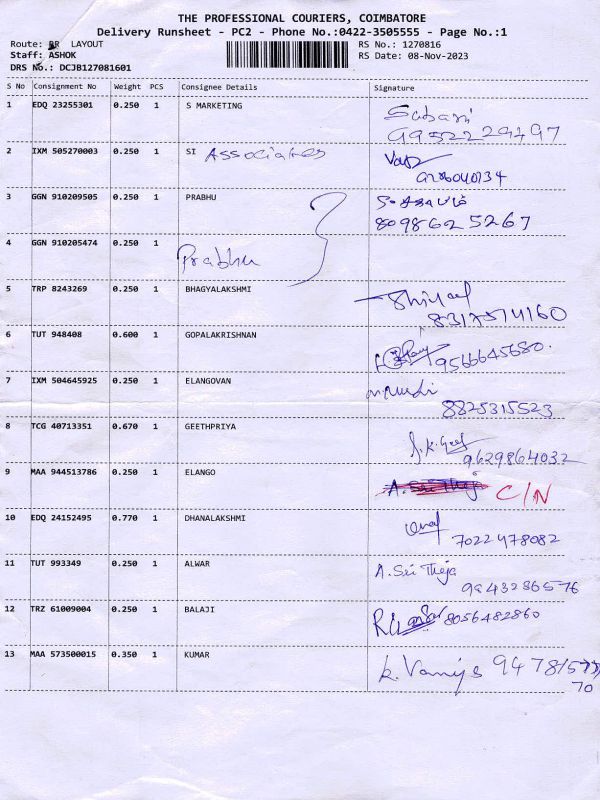 THE PROFESSIONAL COURIERS, COIMBATORE
Delivery Runsheet - PC2 - Phone No.:0422-3505555 - Page No.:1
Route: RR LAYOUT RS No.: 1270816
Staff: ASHOK RS Date: 08-Nov-2023
DRS No.: DCJB127081601
S No Consignment No Weight PCS Consignee Details Signature
1 EDQ 23255301 0.250 1 S MARKETING
2 IXM 505270003 0.250 1 SI Associates
3 GGN 910209505 0.250 1 PRABHU
8098625267
4 GGN 910205474 0.250 1 Prabhu
5 TRP 8243269 0.250 1 BHAGYALAKSHMI
6 TUT 948408 0.600 1 GOPALAKRISHNAN 9566645680.
7 IXM 504645925 0.250 1 ELANGOVAN
8825315523
8 TCG 40713351 0.670 1 GEETHPRIYA
9629864032
9 MAA 944513786 0.250 1 ELANGO A. Sri Theja C/N
10 EDQ 24152495 0.770 1 DHANALAKSHMI
7022478082
11 TUT 993349 0.250 1 ALWAR A. Sri Theja
9943286576
12 TRZ 61009004 0.250 1 BALAJI 8056482860
13 MAA 573500015 0.350 1 KUMAR
70